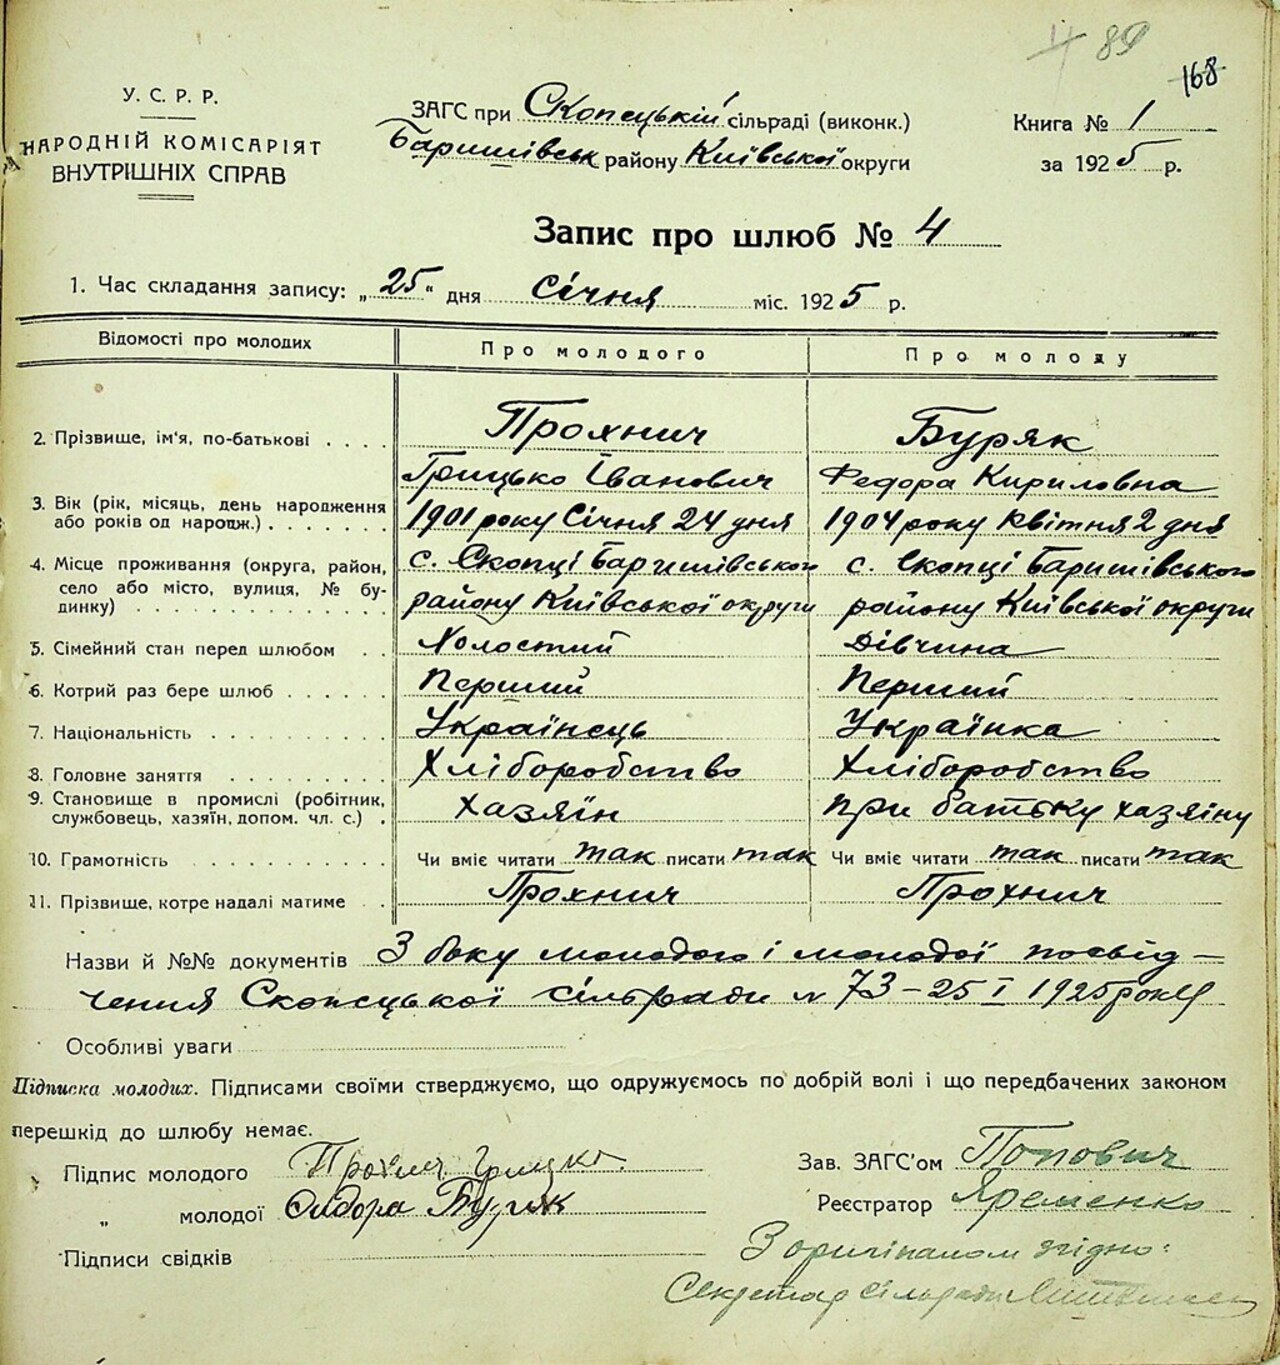 89
168
У. С. Р. Р.
НАРОДНІЙ КОМІСАРІЯТ
ВНУТРІШНІХ СПРАВ
ЗАГС при Скопецькій сільраді (виконк.)
Баришівськ району Київської округи
Книга № 1
за 1925 р.
Запис про шлюб № 4
1. Час складання запису: „25“ дня Січня міс. 1925 р.
Відомості про молодих
Про молодого
Про молоду
2. Прізвище, ім'я, по-батькові . . . .
Прохнич
Грицько Іванович
Буряк
Федора Кириловна
3. Вік (рік, місяць, день народження
або років од народж.) . . . . . . .
1901 року Січня 24 дня
1904 року Квітня 2 дня
4. Місце проживання (округа, район,
село або місто, вулиця, № бу-
динку) . . . . . . . . . . . . . .
с. Скопці Баришівського
району Київської округи
с. Скопці Баришівського
району Київської округи
5. Сімейний стан перед шлюбом . .
Холостий
Дівчина
6. Котрий раз бере шлюб . . . . . .
Перший
Перший
7. Національність . . . . . . . . . .
Українець
Українка
8. Головне заняття . . . . . . . . .
Хліборобство
Хліборобство
9. Становище в промислі (робітник,
службовець, хазяїн, допом. чл. с.) .
хазяїн
при батьку хазяіну
10. Грамотність . . . . . . . . . . .
Чи вміє читати так писати так
Чи вміє читати так писати так
11. Прізвище, котре надалі матиме . .
Прохнич
Прохнич
Назви й №№ документів З боку молодого і молодої посвід-
чення Скопецької сільради № 73 – 25 I 1925 року
Особливі уваги
Підписка молодих. Підписами своїми стверджуємо, що одружуємось по добрій волі і що передбачених законом
перешкід до шлюбу немає.
Підпис молодого Прохнич Грицко.
„ молодої Федора Буряк
Підписи свідків
Зав. ЗАГС'ом Попович
Реєстратор Яременко
З оригіналом згідно:
Секретар сільради